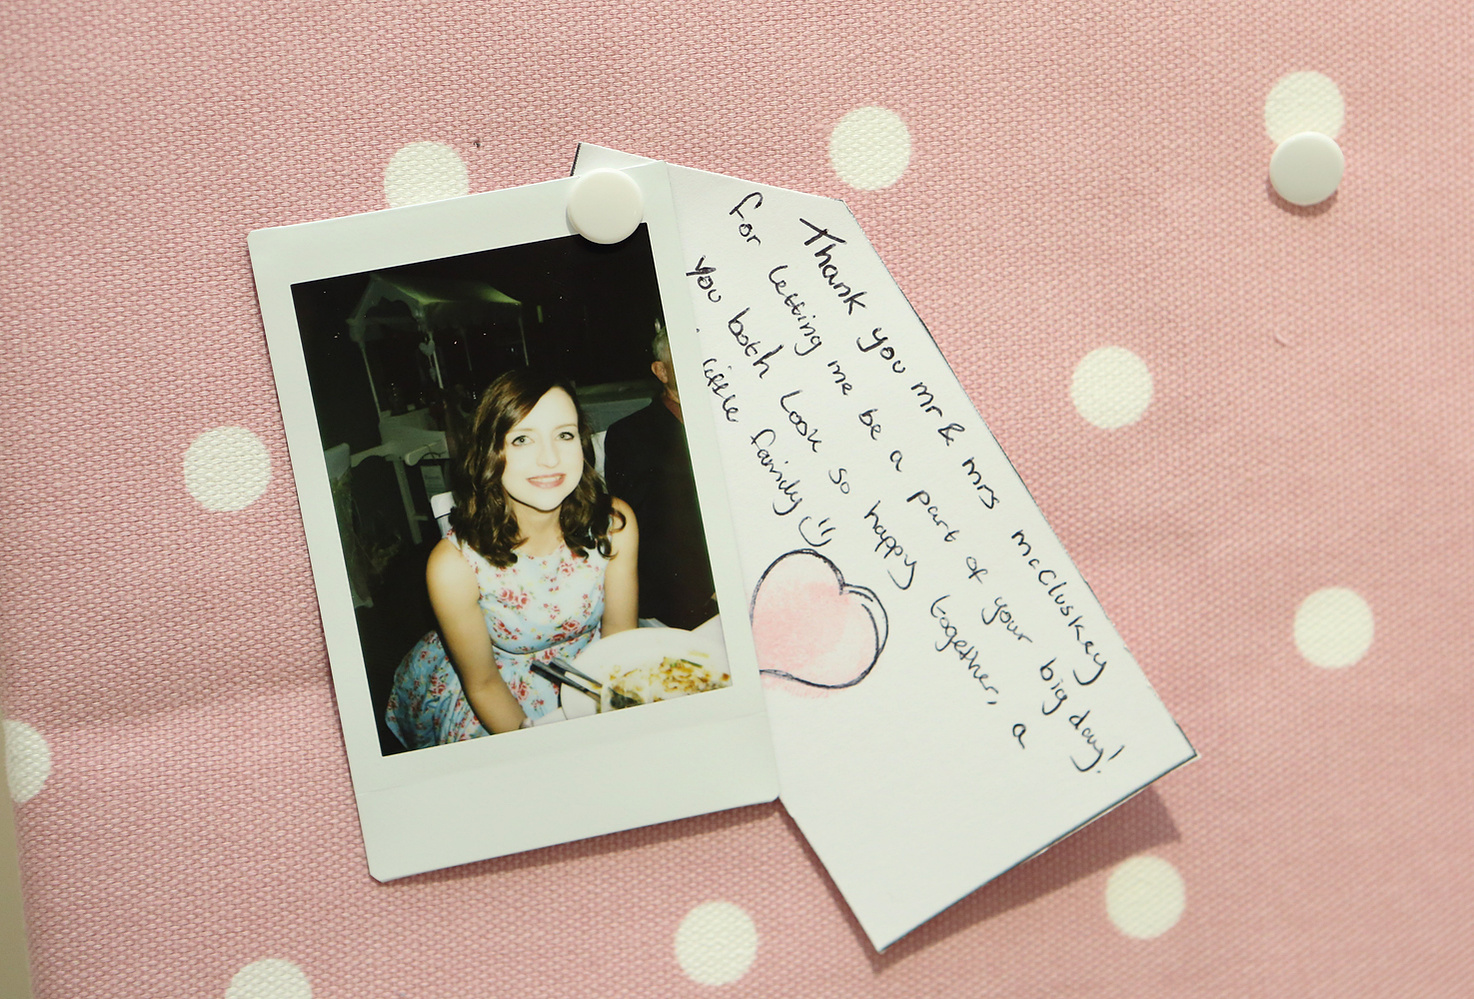 Thank you mr & mrs mcCluskey
for letting me be a part of your big day!
you both look so happy together, a
little family :)